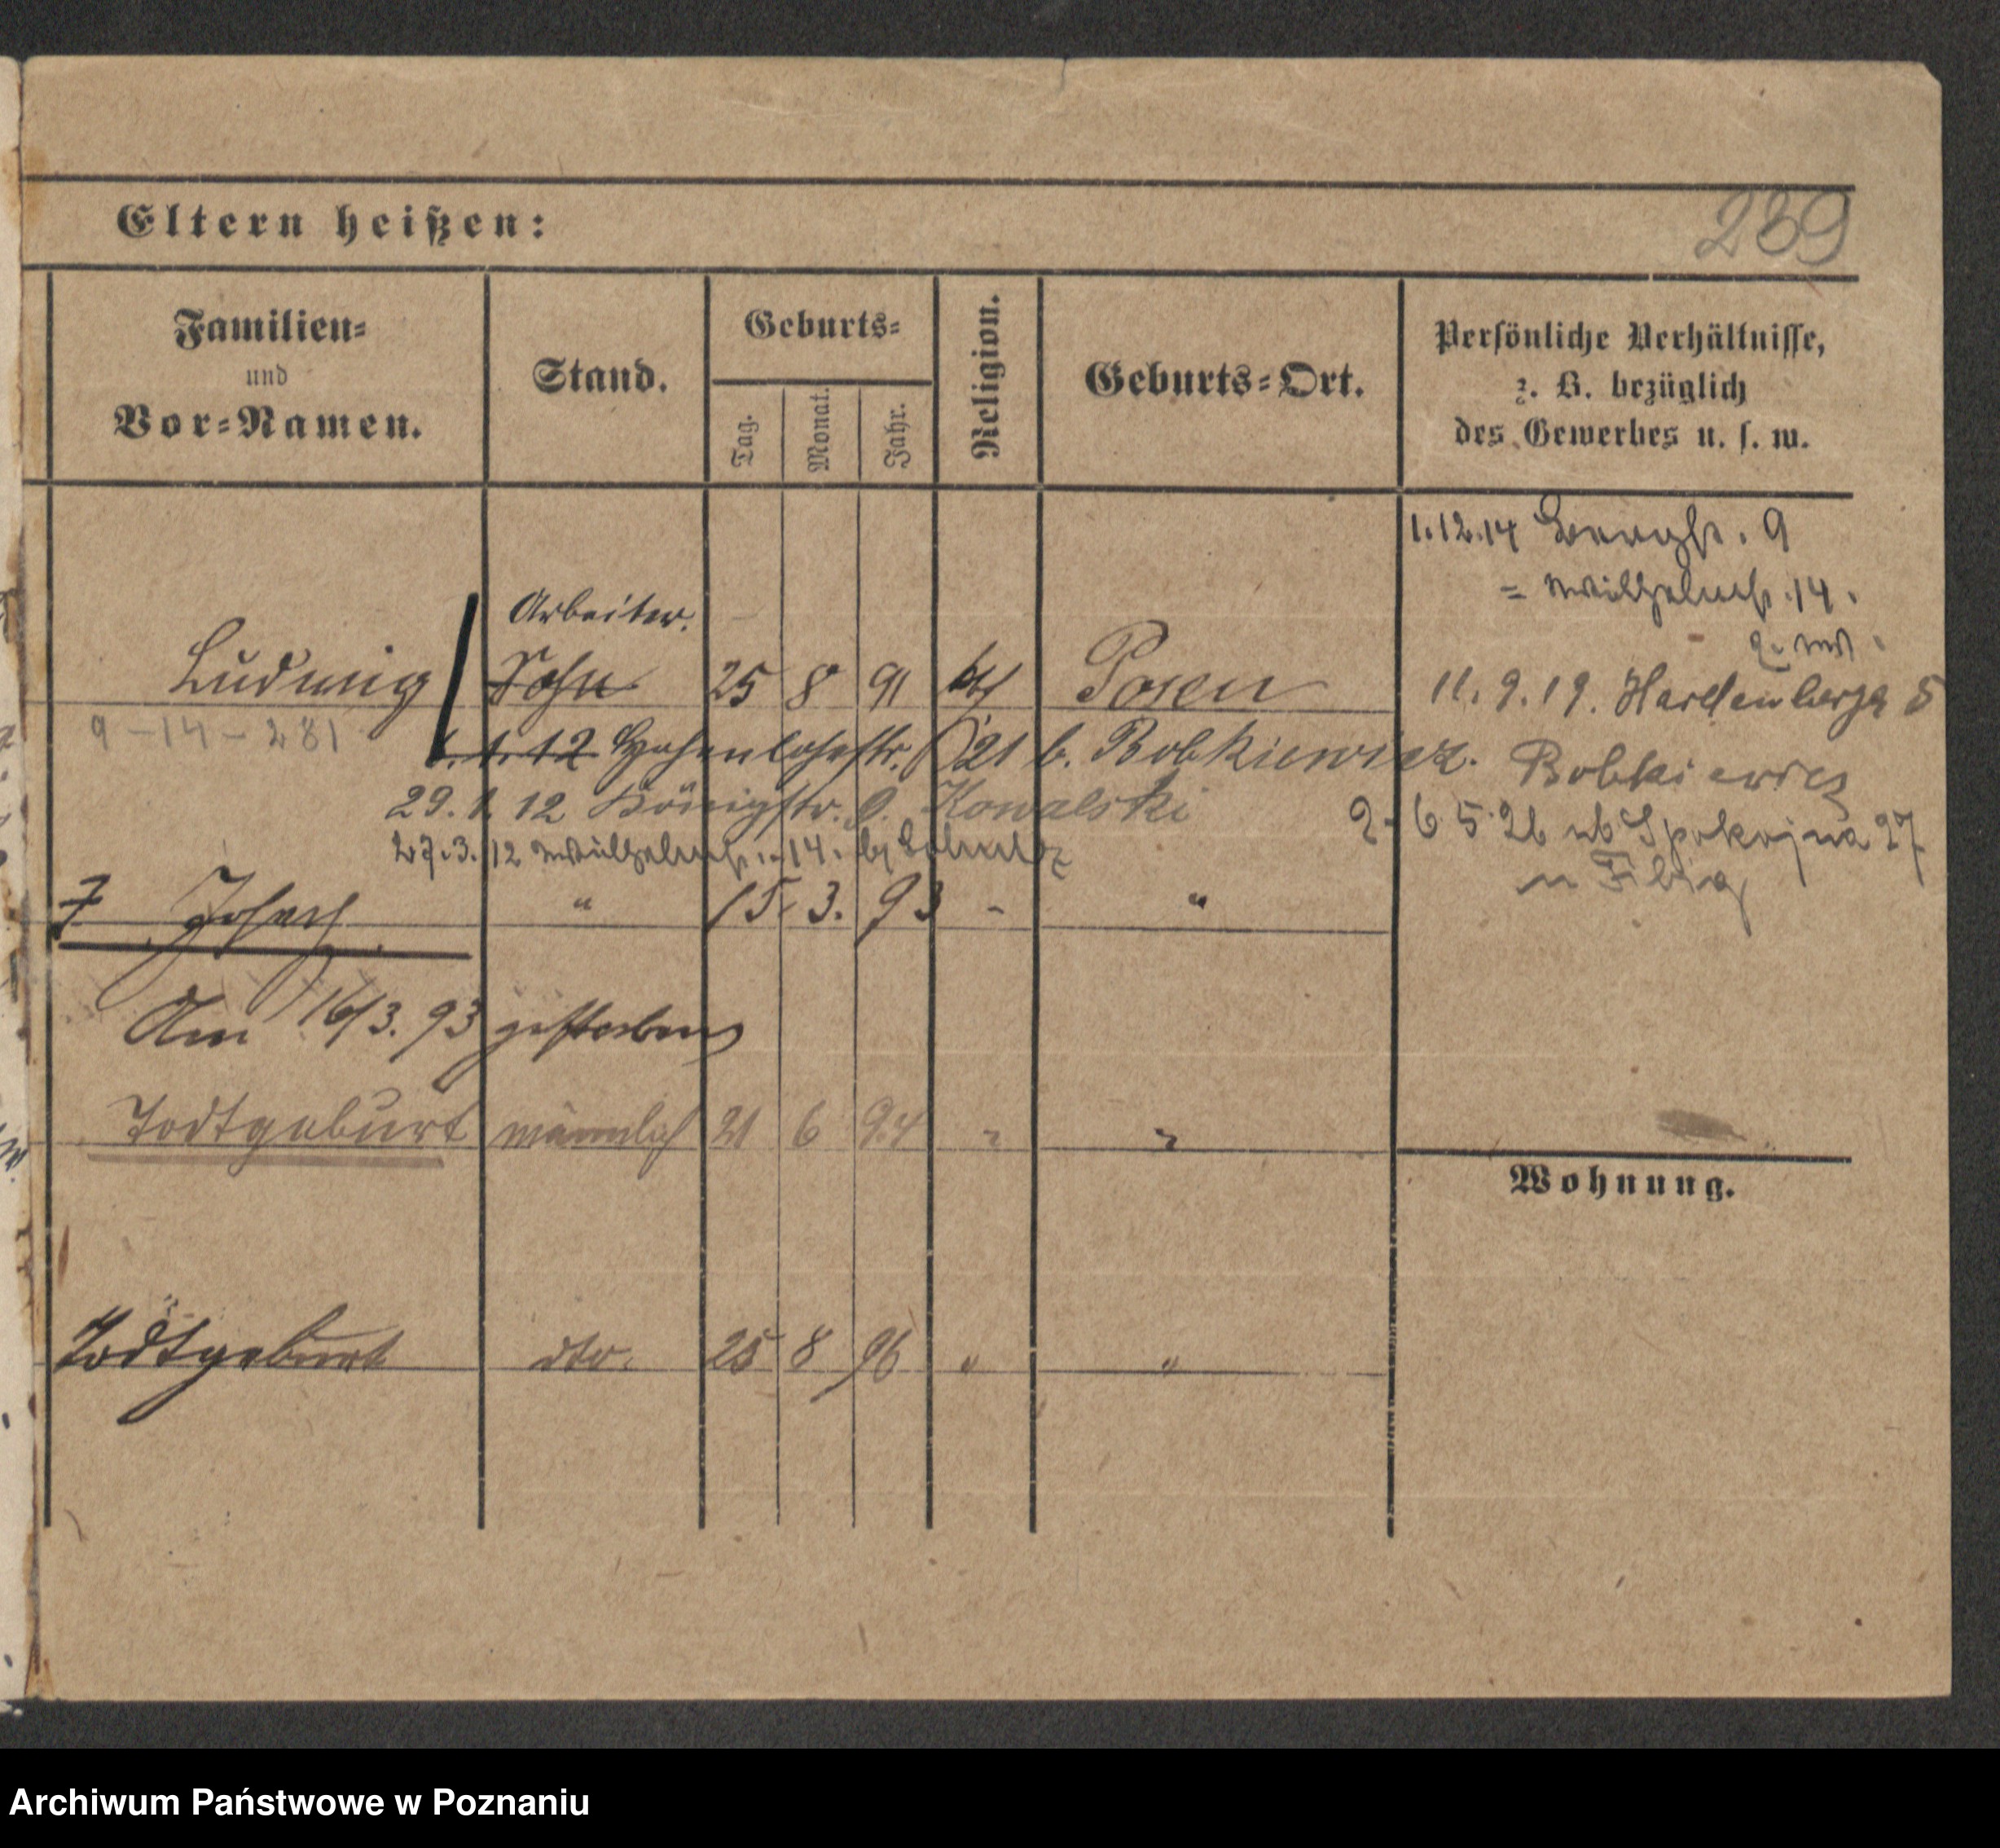 239
Eltern heißen:
Familien-
und
Vor-Namen.
Stand.
Geburts-
Tag.
Monat.
Jahr.
Religion.
Geburts-Ort.
Persönliche Verhältnisse,
z. B. bezüglich
des Gewerbes u. s. w.
1.12.14 Bergstr. 9
= Wilhelmstr. 14.
Arbeiter.
Ludwig Sohn 25 8 91 kth Posen
11.9.19. Hardenbergs 5
9-14-281
1.1.12 Hohenlohestr. 21 b. Bobkiewicz.
Bobkiewicz
29.1.12 Königstr. 9. Kowalski
6 5 26 ub Spokojna 27
27.3.12 Wilhelmstr. 14. bei
u Filbig
7 Joseph " 15. 3. 93 - "
Am 16/3. 93 gestorben
Todtgeburt männlich 21 6 94 " "
Wohnung.
Todtgeburt dto. 25 8 96 " "
Archiwum Państwowe w Poznaniu